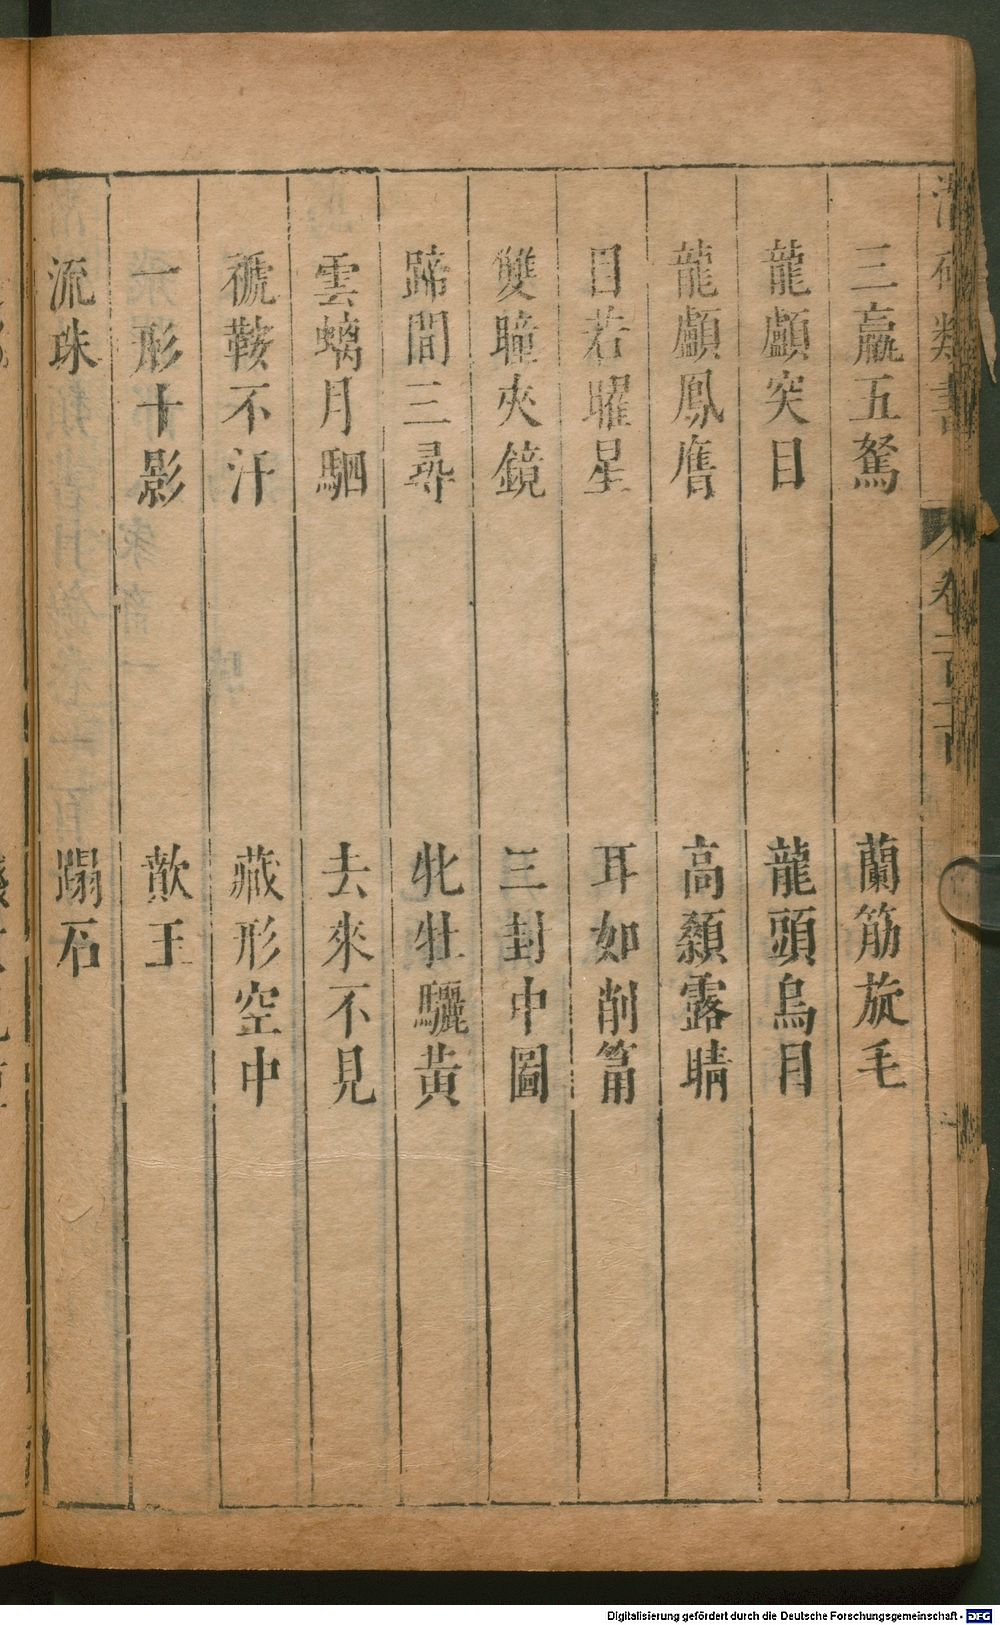 三羸五駑　蘭筋旋毛
龍顱突目　龍頭鳥目
龍顱鳳膺　高顙露睛
目若曜星　耳如削筩
雙瞳夾鏡　三封中圖
蹄間三尋　牝牡驪黃
雲螭月駟　去來不見
褫鞍不汗　藏形空中
一形十影　歕玉
流珠　蹋石
Digitalisierung gefördert durch die Deutsche Forschungsgemeinschaft - DFG